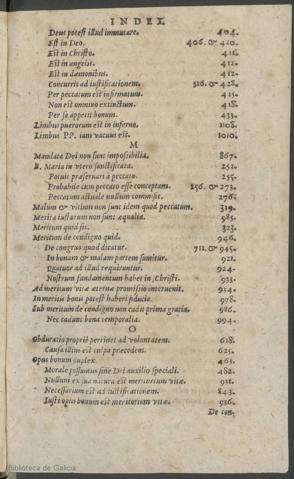 INDEX.
Deus potest illud immutare. 404.
Est in Deo. 406. & 410.
Est in Christo. 411.
Est in angelis. 412.
Est in dæmonibus. 412.
Concurrit ad iustificationem. 316. & 428.
Per peccatum est infirmatum. 415.
Non est omnino extinctum. 418.
Per se appetit bonum. 433.
Limbus puerorum est in inferno. 1108.
Limbus PP. iam vacuus est. 1010.
M
Mandata Dei non sunt impossibilia. 867.
B. Maria in vtero sanctificata. 252.
Potuit præseruari à peccato. 255.
Probabile eam peccato esse conceptam. 256. & 273.
Peccatum actuale nullum commisit. 276.
Malum & vitium non sunt idem quod peccatum. 334.
Merita iustorum non sunt æqualia. 985.
Meritum quid sit. 323.
Meritum de condigno quid. 946.
De congruo quod dicatur. 711. & 945.
In bonam & malam partem sumitur. 921.
Quatuor ad illud requiruntur. 924.
Nostrum fundamentum habet in Christi. 933.
Ad meritum vitæ æternæ promissio interuenit. 934.
In meritis bonis potest haberi fiducia. 978.
Sub meritum de condigno non cadit prima gratia. 986.
Nec cadunt bona temporalia. 994.
O
Obduratio propriè pertinet ad voluntatem. 618.
Causa illius est culpa præcedens. 625.
Opus bonum duplex. 463.
Morale possumus sine Dei auxilio speciali. 482.
Nullum ex sua natura est meritorium vitæ. 931.
Necessarium est ad iustificationem. 843.
Iusti opus bonum est meritorium vitæ. 936.
De con-
Biblioteca de Galicia